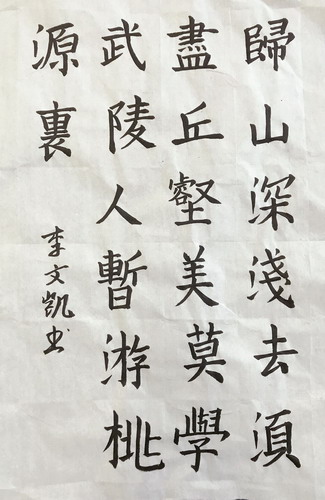 歸山深淺去須
盡丘壑美莫學
武陵人暫游桃
源裏
李文凱书